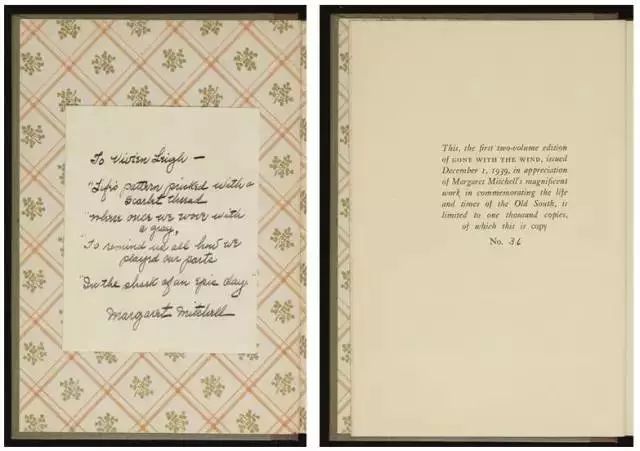 To Vivien Leigh —
"Life's pattern pricked with a
scarlet thread
"where once we wove with
a gray,
"To remind us all how we
played our parts
"In the shock of an epic day."
Margaret Mitchell
This, the first two-volume edition
of GONE WITH THE WIND, issued
December 1, 1939, in appreciation
of Margaret Mitchell's magnificent
work in commemorating the life
and times of the Old South, is
limited to one thousand copies,
of which this is copy
No. 36